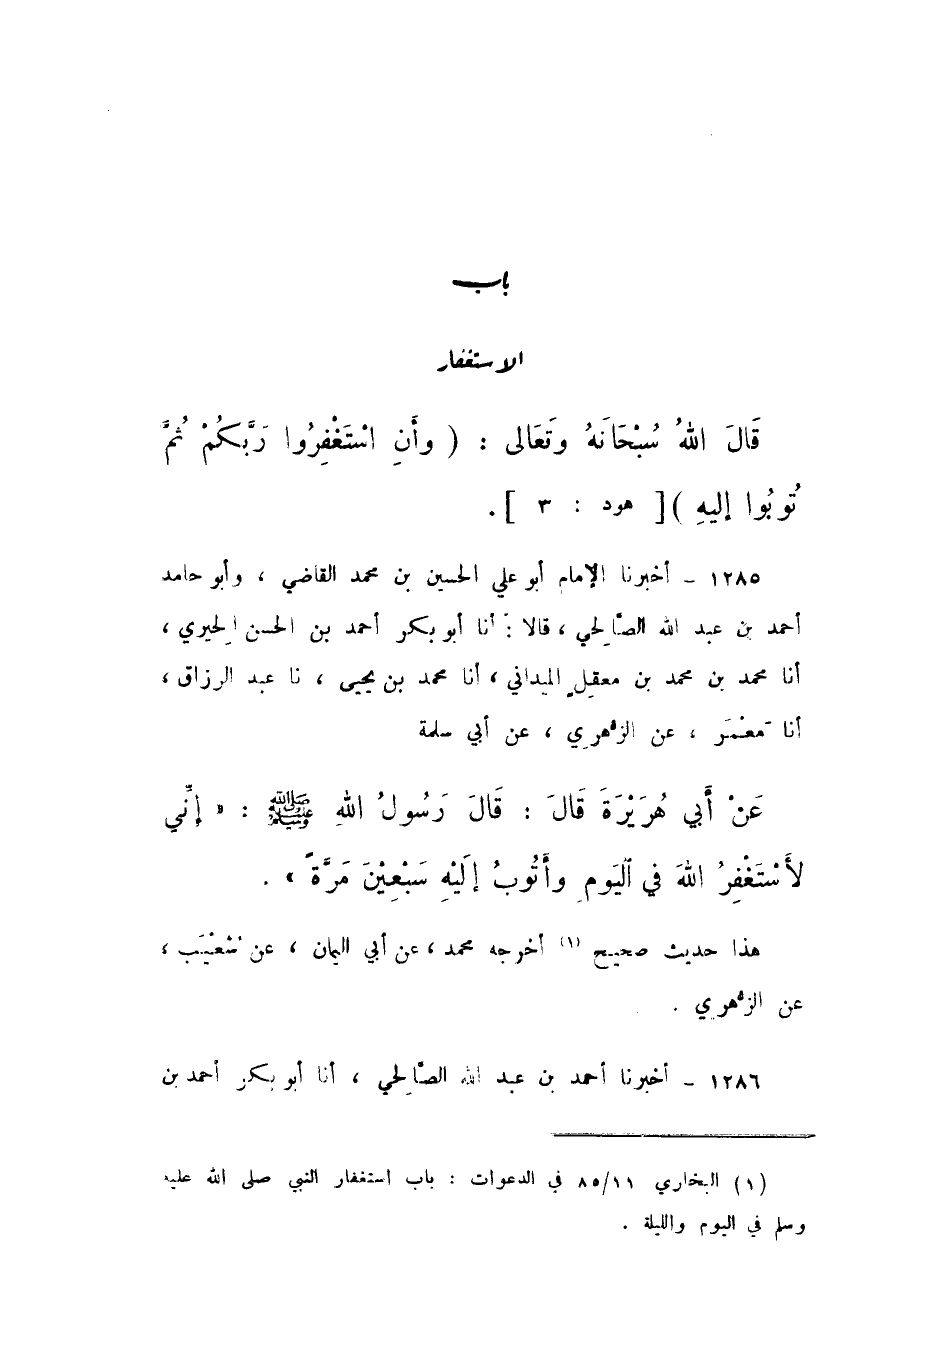 باب
الاستغفار
قَالَ اللهُ سُبْحَانَهُ وَتَعَالى : ( وأَنِ اسْتَغْفِرُوا رَبَّكُمْ ثُمَّ
تُوبُوا إليهِ )[ هود : ٣ ] .
١٢٨٥ ـ أخبرنا الإمام أبو علي الحسين بن محمد القاضي ، وأبو حامد
أحمد بن عبد الله الصَّالِحي ، قالا : أنا أبو بكر أحمد بن الحسن الحِيري ،
أنا محمد بن محمد بن معقِل الميداني ، أنا محمد بن يحيى ، نا عبد الرزاق ،
أنا مَعْمَر ، عن الزُّهرِي ، عن أبي سلمة
عَنْ أَبي هُرَيْرَةَ قَالَ : قَالَ رَسُولُ اللهِ ﷺ : « إنِّي
لأَسْتَغْفِرُ اللهَ في اليَومِ وأَتُوبُ إلَيْهِ سَبْعِيْنَ مَرَّةً » .
هذا حديث صحيح (١) أخرجه محمد ، عن أبي اليمان ، عن شُعَيْب ،
عن الزُّهرِي .
١٢٨٦ ـ أخبرنا أحمد بن عبد الله الصَّالِحي ، أنا أبو بكر أحمد بن
(١) البخاري ٨٥/١١ في الدعوات : باب استغفار النبي صلى الله عليه
وسلم في اليوم والليلة .